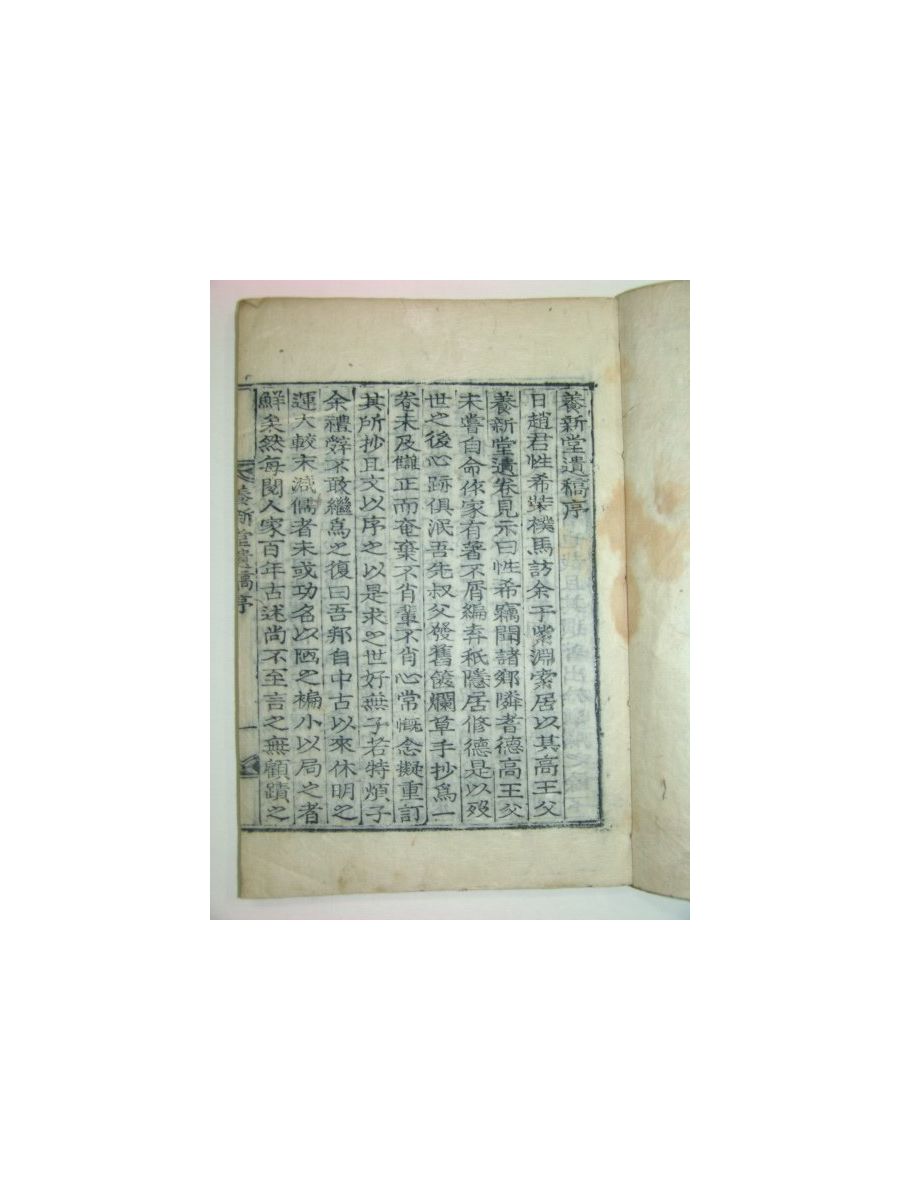 養新堂遺稿序
日趙君性希策樸馬訪余于紫淵索居以其高王父
養新堂遺卷見示曰性希竊聞諸鄉隣耆德高王父
未嘗自命作家有著不屑編弆秪隱居修德是以歿
世之後心跡俱泯吾先叔父發舊篋爛草手抄爲一
卷未及讎正而奄棄不肖輩不肖心常慨念擬重訂
其所抄且文以序之以是求之世好無子若特煩子
余禮辭不敢繼爲之復曰吾邦自中古以來休明之
運大較末減儒者未或功名以陋之褊小以局之者
鮮矣然每閱人家百年古述尚不至言之無顧蹟之
養新堂遺稿序
一